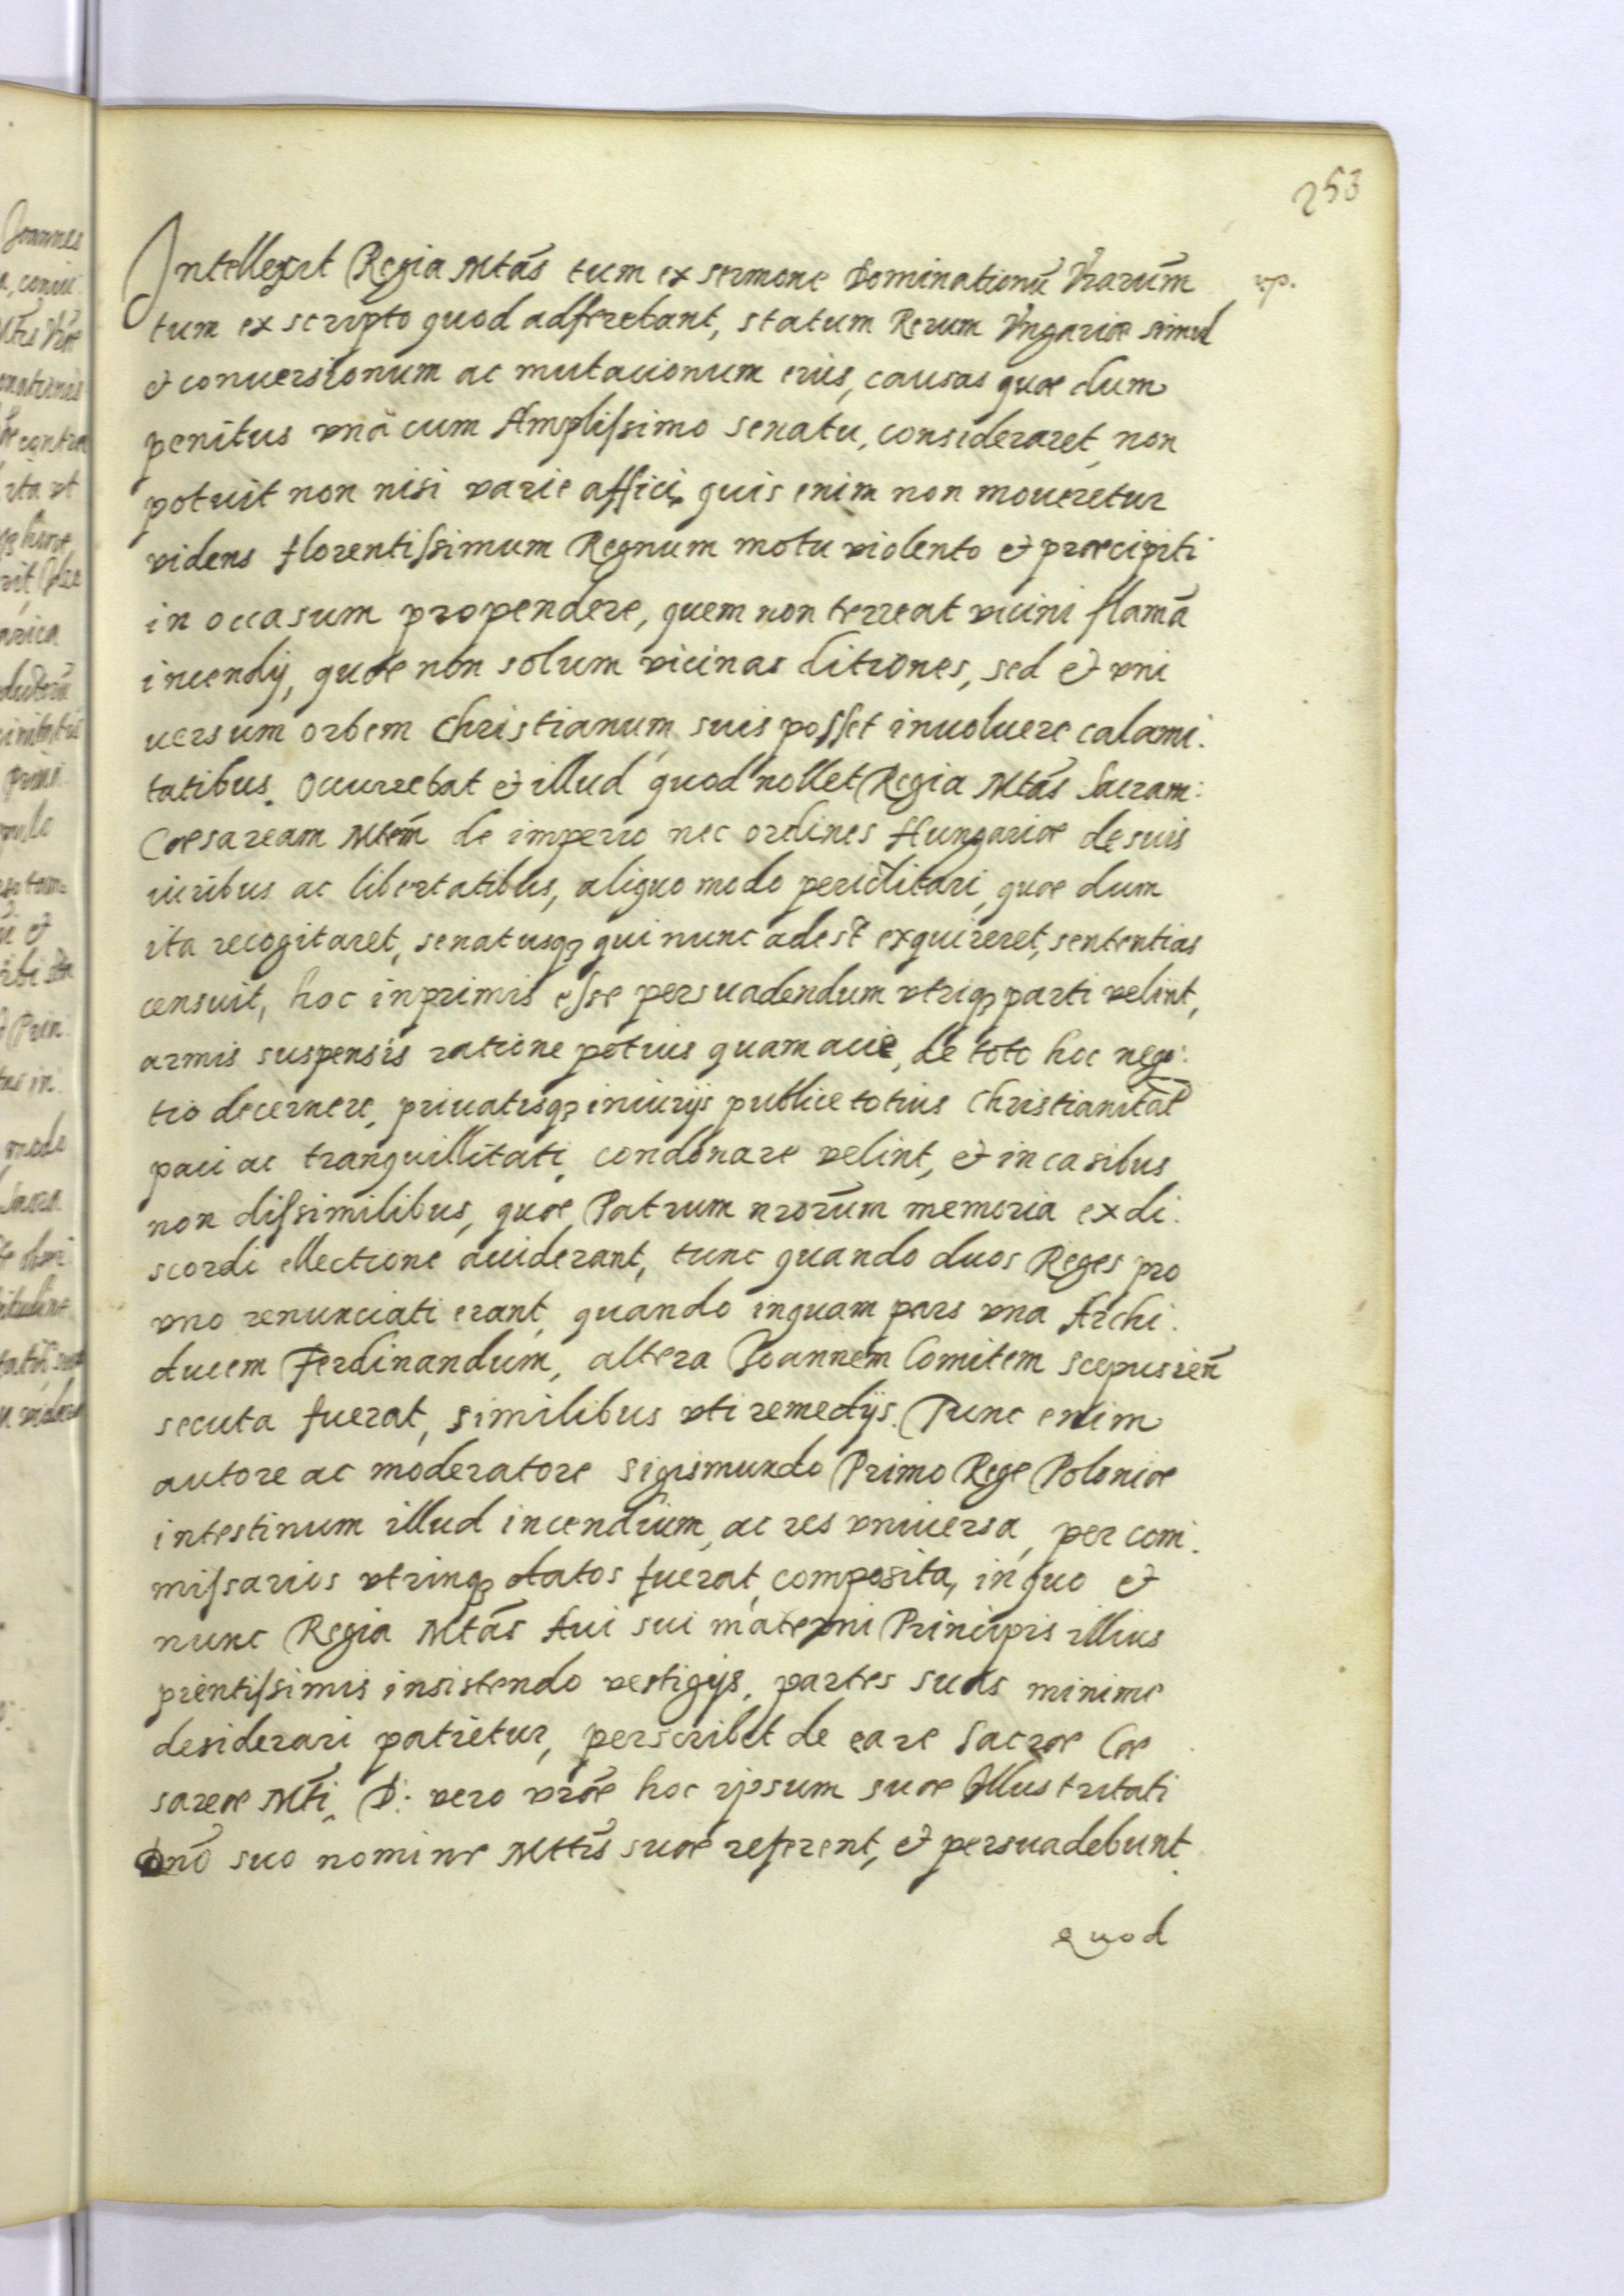 253
Intellexit Regia Mtãs tum ex sermone Dominationũ Vrarũm
tum ex scripto quod adferebant, statum Rerum Vngariæ simul
et conuersionum ac mutacionum eius, causas quæ dum
penitus vnà cum Amplissimo senatu, consideraret, non
potuit non nisi varie affici, quis enim non moueretur
videns florentissimum Regnum motu violento et præcipiti
in occasum propendere, quem non terreat vicini flamã
incendij, quæ non solum vicinas ditiones, sed et vni
uersum orbem Christianum suis posset inuoluere calami:
tatibus. Occurrebat et illud quod nollet Regia Mtãs Sacram:
Cæsaream Mtẽm de imperio nec ordines Hungariæ de suis
iuribus ac libertatibus, aliquo modo periclitari, quæ dum
ita recogitaret, senatusq; qui nunc adest exquireret, sententias
censuit, hoc inprimis esse persuadendum vtriq; parti velint,
armis suspensis ratione potius quam acie, de toto hoc nego:
tio decernere, priuatisq; iniurijs publice totius Christianitat̃
paci ac tranquillitati, condonare velint, et in casibus
non dissimilibus, quæ Patrum nrorũm memoria ex di:
scordi ellectione acciderant, tunc quando duos Reges pro
vno renunciati erant, quando inquam pars vna Archi:
ducem Ferdinandum, altera Joannem Comitem Scepusieñ
secuta fuerat, similibus vti remedijs. Tunc enim
autore ac moderatore Sigismundo Primo Rege Poloniæ
intestinum illud incendium, ac res vniuersa, per com:
missarios vtrinq; datos fuerat composita, in quo et
nunc Regia Mtãs Aui sui materni Principis illius
prentissimis insistendo vestigijs, partes suas minime
desiderari patietur, perscribet de ea re Sacræ Cæ
sareæ Mti. D: vero vrãe hoc ipsum suæ Illustritati
Dnõ suo nomine Mttis suæ referent, et persuadebunt
quod